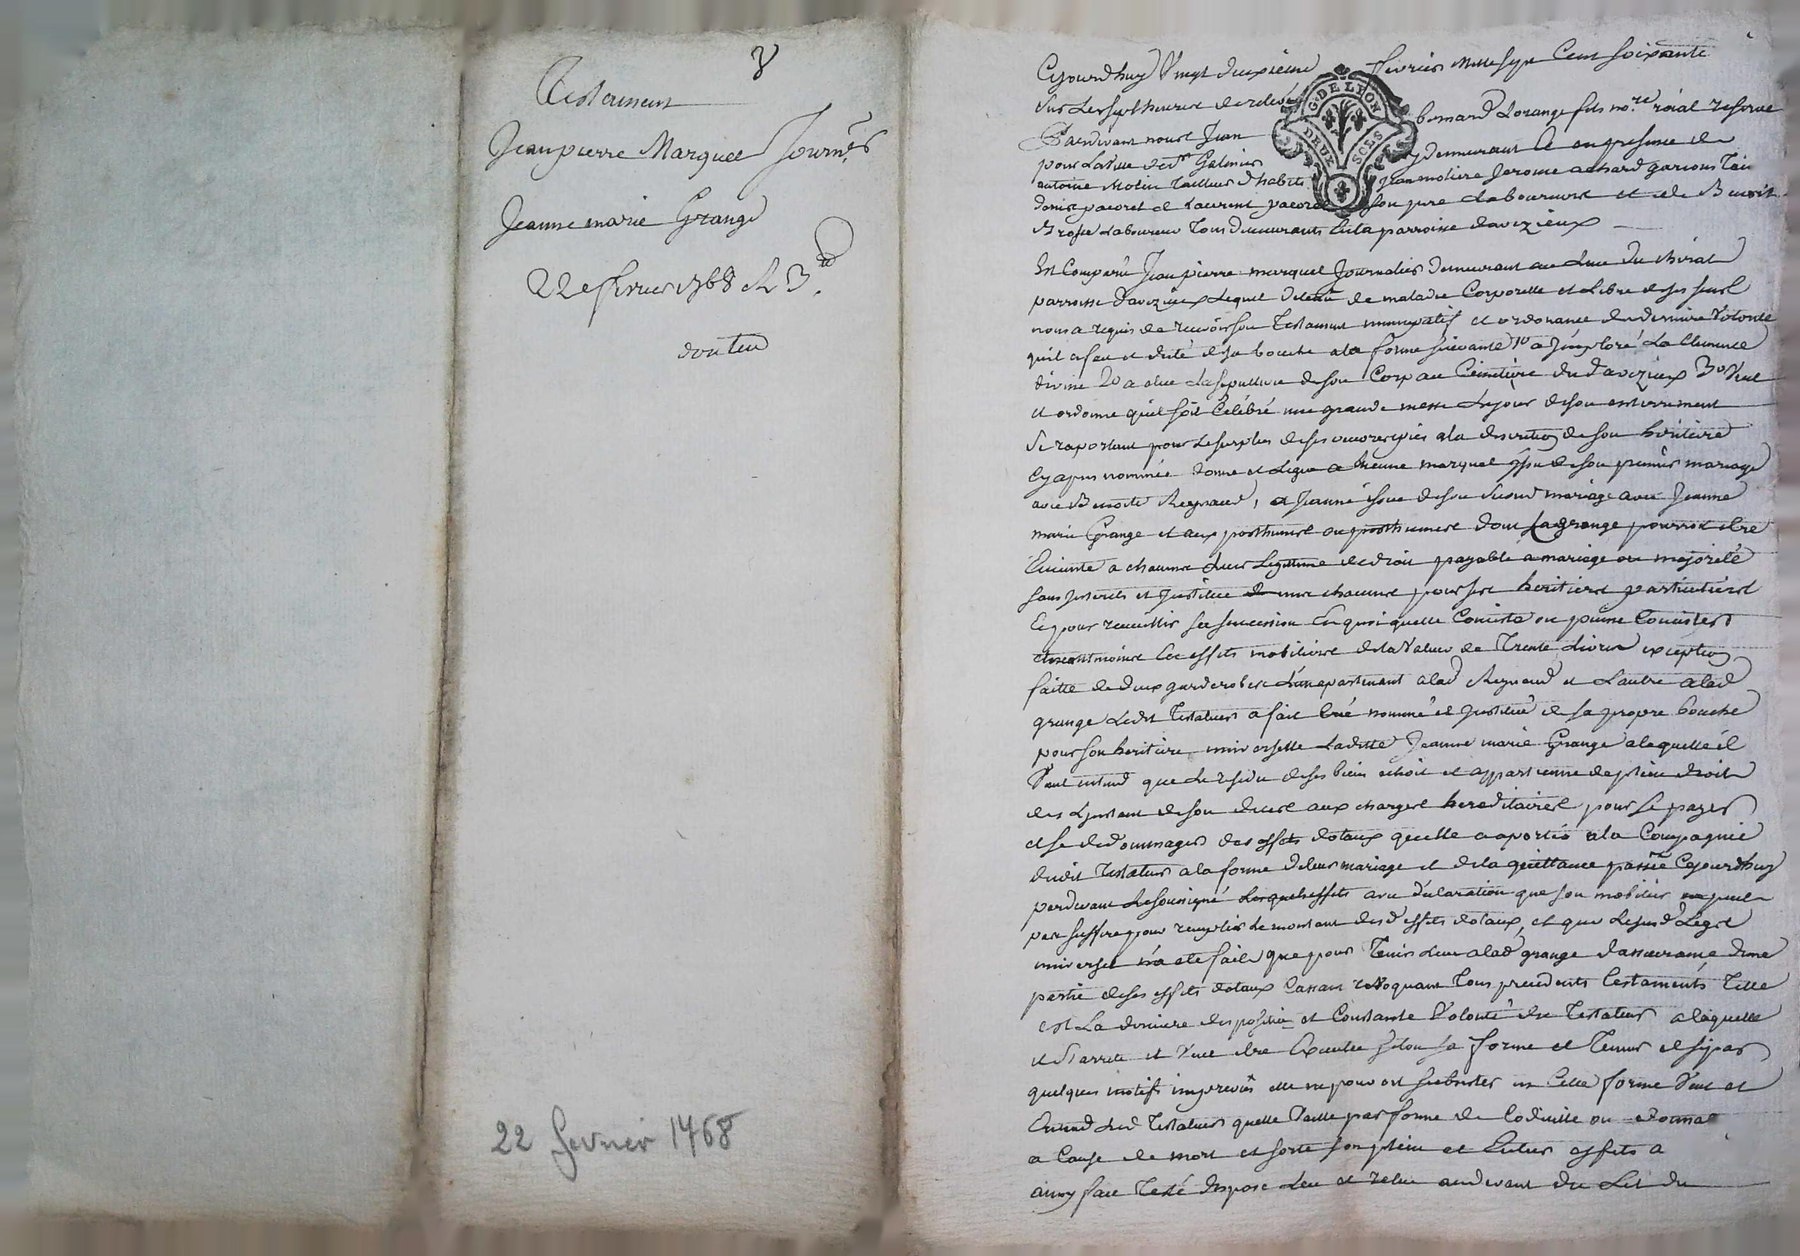 8
Testament
Jean pierre Marquet Journ.er
Jeanne marie Grange
22e fevrier 1768 Cl 3.d
22 fevrier 1768
G. DE LYON
DEUX SOLS
Cejourdhuy Vingt deuxieme fevrier Mille sept Cent soixante
sur les sept heures de relevé bernard Lorange fils no.re roial reservé
Pardevant nous Jean
pour la Ville de St Galmier y demeurant et en presence de
antoine Molin Tailleur d'habits Jean moliere Jerome achard garcons Tail
denis pacoret et Laurent pacoret son pere Laboureurs et de Benoit
Laboureur Tous demeurants en la parroisse d'avezieux
Est Comparu Jean pierre marquet Journalier demeurant au Lieu du
parroisse d'avezieux Lequel detenu de maladie Corporelle et Libre de ses sens
nous a requis de recevoir son Testament nuncupatif et ordonance de derniere Volonté
quil a fait et dicté de sa bouche a la forme suivante 1o a Jmploré La Clemence
divine 2o a elue la sepulture de son Corp au Cimetiere dud avezieux 3o Veut
et ordonne quil soit Celebré une grande messe Le jour de son enterrement
Se raportant pour Le surplus de ses oeuvres pies a la discretion de son heritiere
Cy apres nommée donne et Legue a Etienne marquet yssu de son premier mariage
avec Benoite Reynaud, a Jeanne issue de son Second mariage avec Jeanne
marie Grange et aux posthumes ou posthumes dont La grange pourroit etre
Enceinte a chacun Leur Legitime de droit payable a mariage ou majorité
sans Jnterets et Jnstitue chacuns pour ses heritiers particuliers
Et pour recueillir sa succession En quoi quelle Consiste ou puisse Consister
neantmoins Les effets mobiliers de la Valeur de Trente Livres exception
faitte de deux garderobes L'une apartenant a lad Reynaud et L'autre a lad
grange Ledit Testateur a fait Créé nommé et Jnstitué de sa propre bouche
pour son heritiere universelle Laditte Jeanne marie Grange a laquelle il
Veut entend que Le residu de ses biens echoit et appartienne de plein droit
des L'jnstant de son deces aux charges hereditaires pour se payer
et se dedommager des effets dotaux quelle a aportés a la Compagnie
dudit Testateur a la forme de leur mariage et de la quittance passée Cejourdhuy
pardevant Le soussigné Lesquels effets avec declaration que son mobilier ne peut
pas suffire pour remplir Le montant desd effets dotaux, et que Le susd Legs
universel n'a eté fait que pour Tenir Lieu a lad grange d'assurance d'une
partie de ses effets dotaux Cassant revoquant Tous precedents Testaments Telle
est La derniere disposition et Constante Volonté du Testateur a laquelle
il S'arrete et Veut etre Executée selon sa forme et Teneur et si par
quelques motifs imprevus elle ne pouvoit subsister en Cette forme Veut et
Entend Led Testateur quelle Vaille par forme de Codicille ou donnaon
a Cause de mort et sorte son plein et Entier effets a
ainsy fait Testé disposé Leu et relu audevant du Lit du